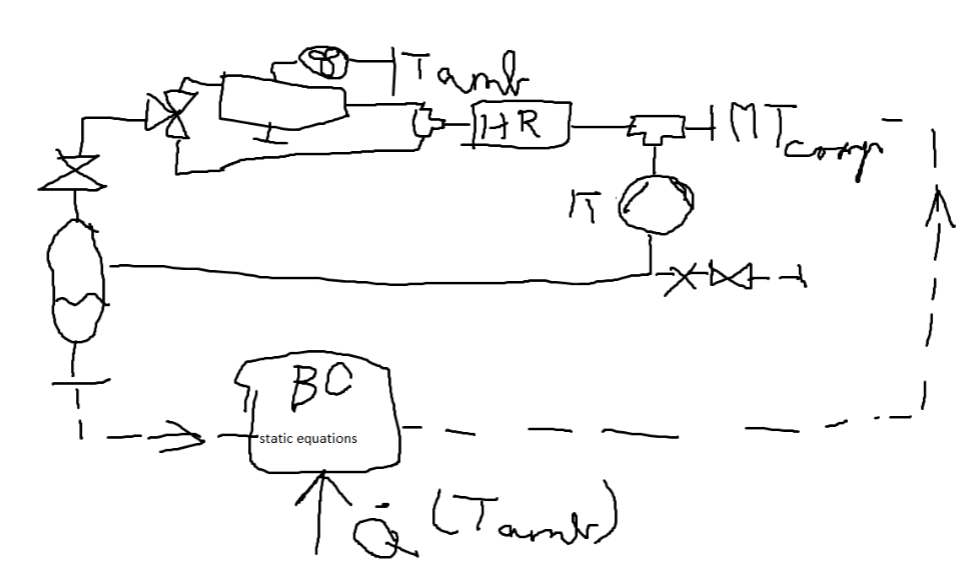 Tamb
HR
MTcomp
IT
BC
static equations
Q̇ (Tamb)